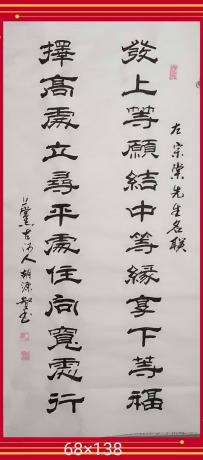 發上等願結中等緣享下等福
左宗棠先生名联
擇高處立尋平處住向寬處行
68×138